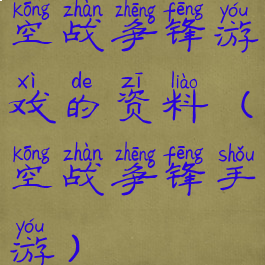 kōng zhàn zhēng fēng yóu
空战争锋游
xì de zī liào
戏的资料（
kōng zhàn zhēng fēng shǒu
空战争锋手
yóu
游）